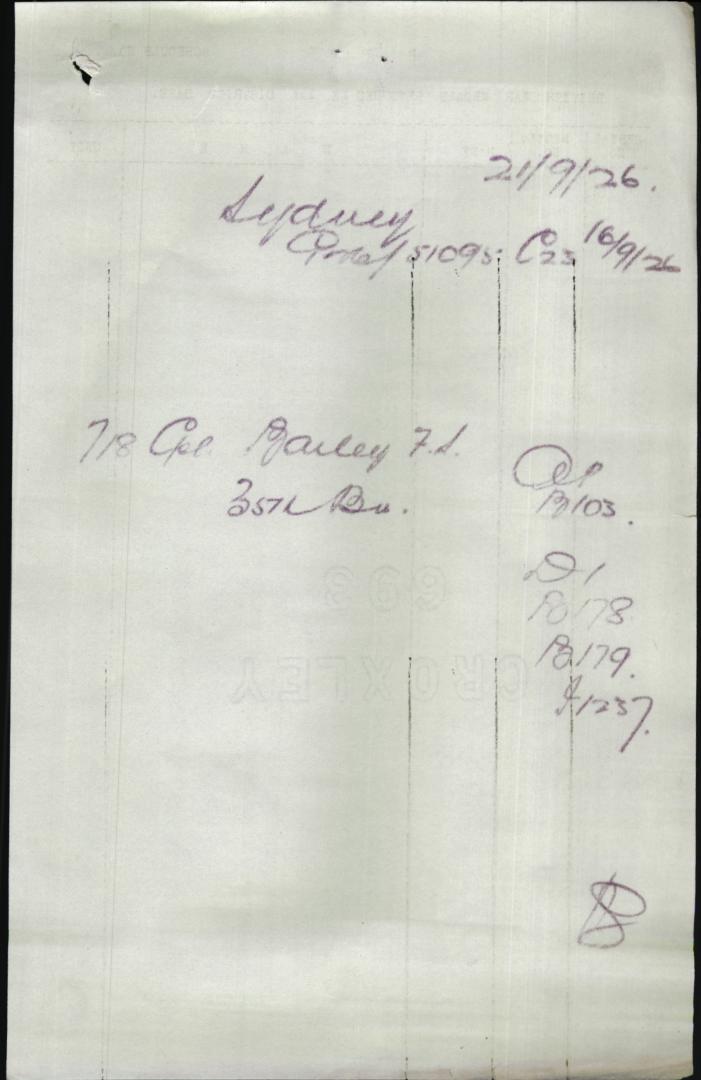 21/9/26.
Sydney
51095 C23 16/9/26
718 Cpl. Bailey F.S.
35th Bn.
B103.
D1
B178
B179.
I1237.
693
CROXLEY